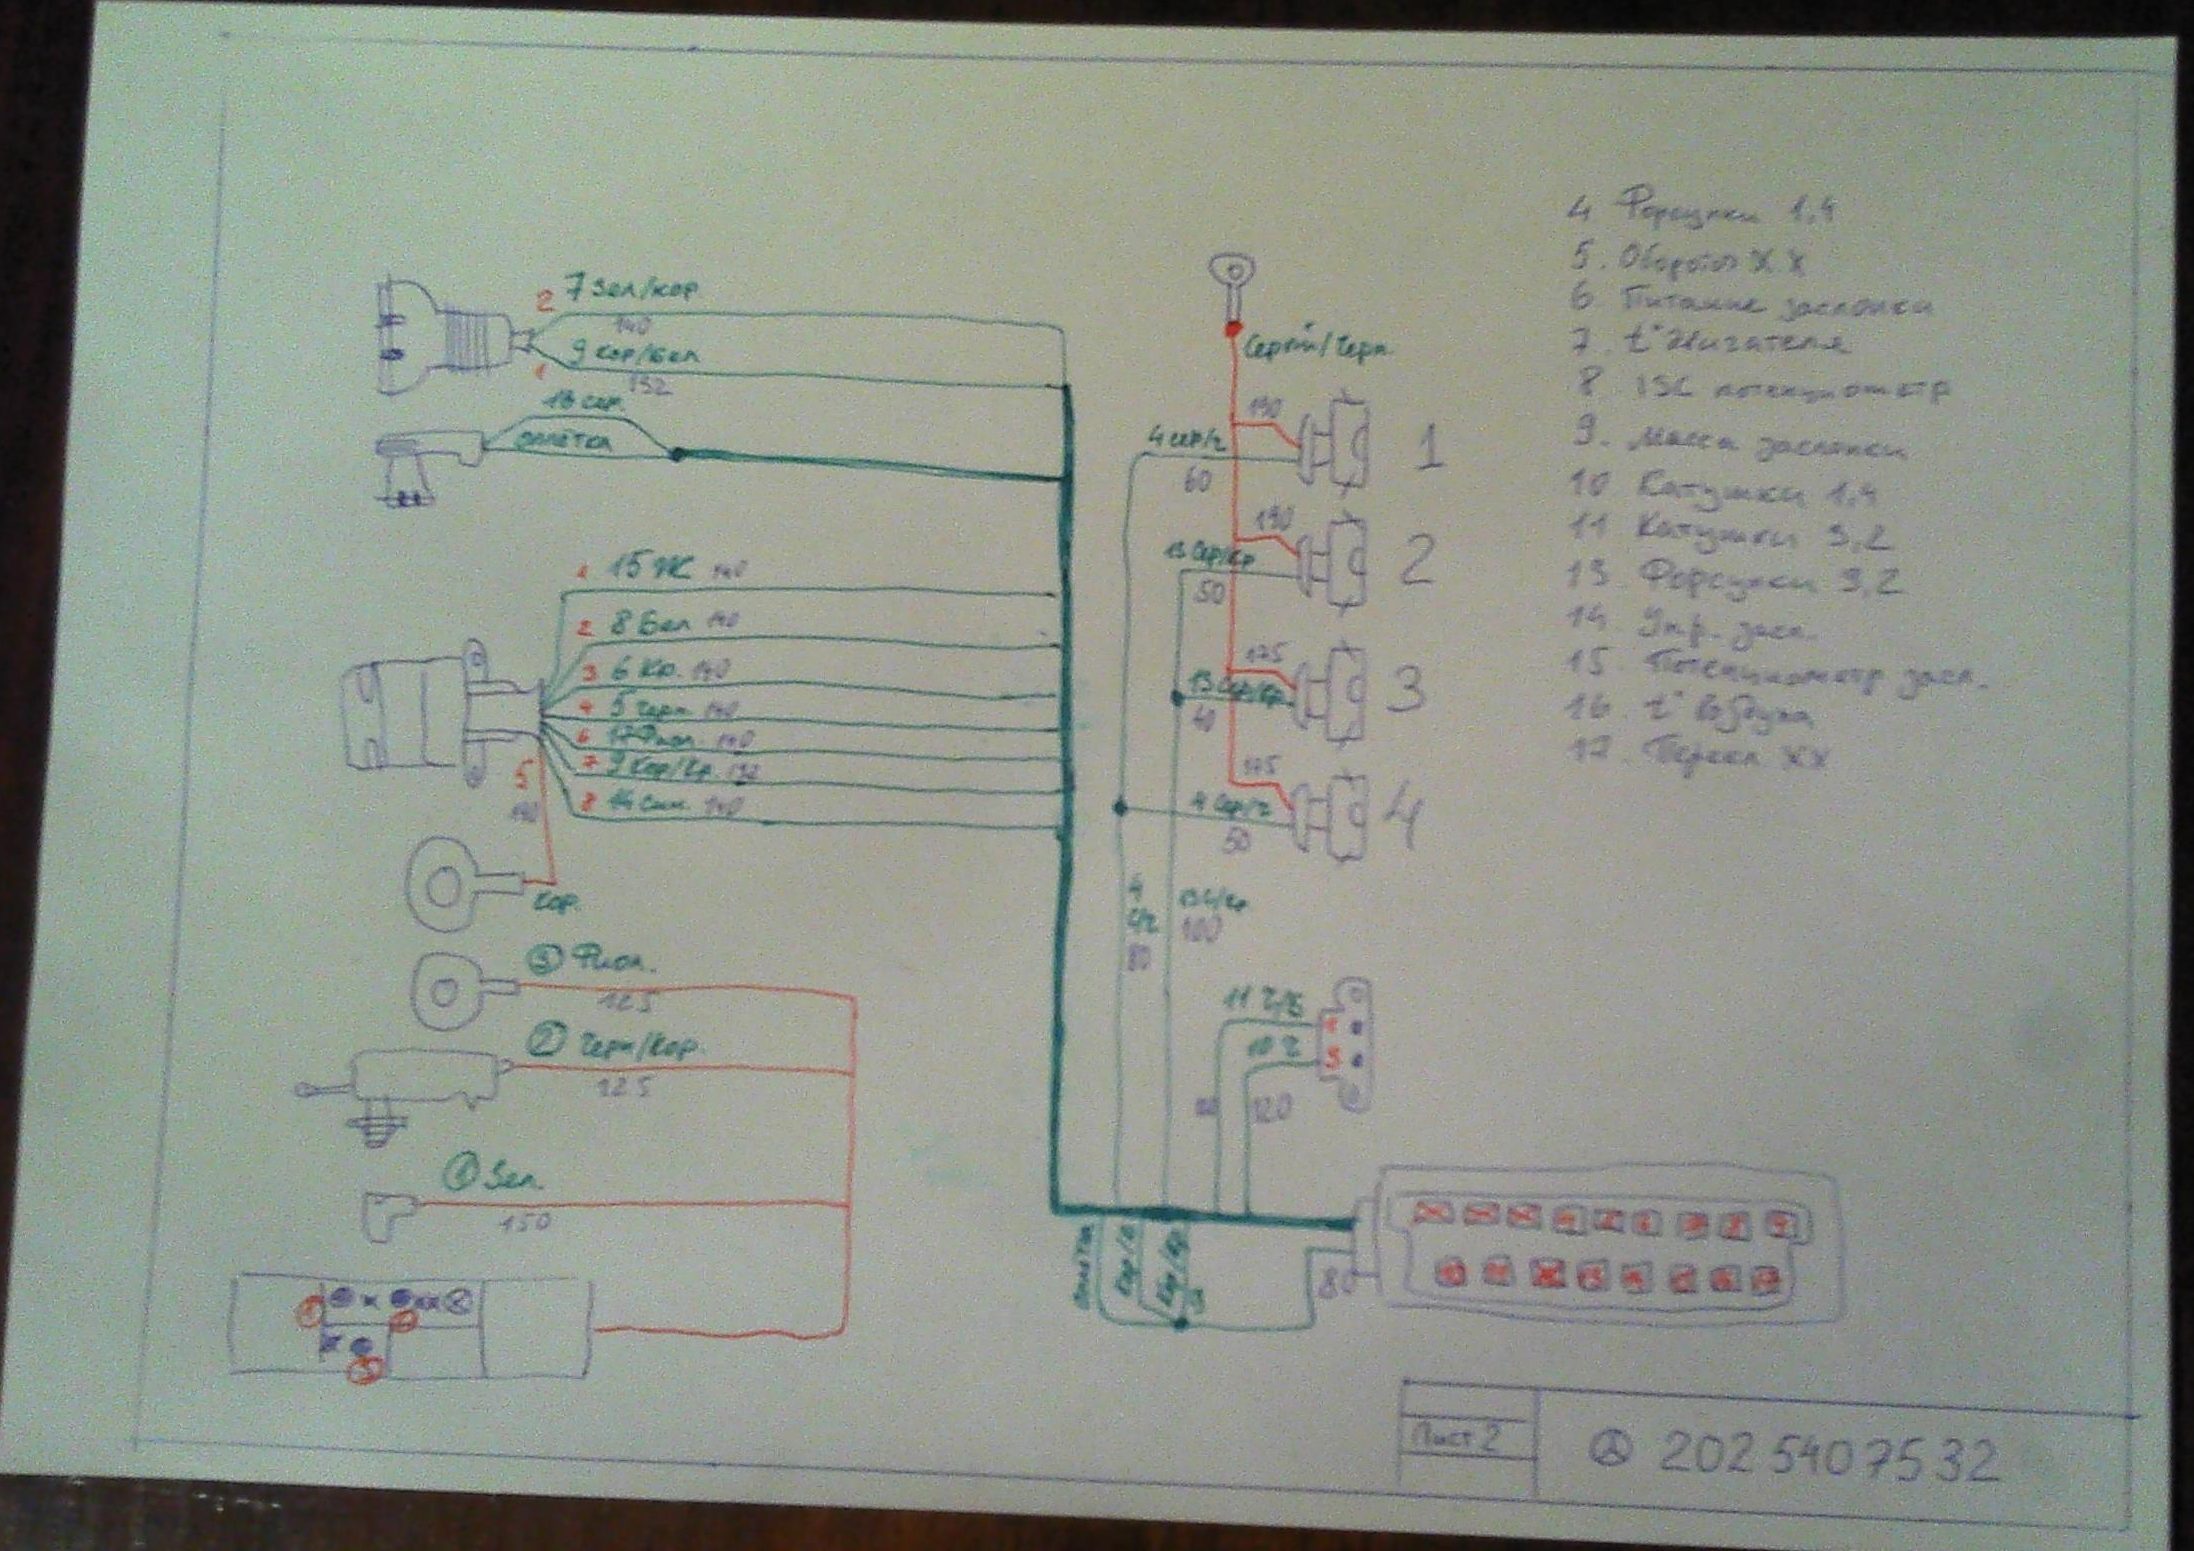 2 7 Зел/кор.
140
9 кор/бел
1 132
16 сер.
оплётка
1 15 Ж 140
2 8 Бел 140
3 6 Кр. 140
4 5 Черн 140
6 17 Фиол. 140
7 9 Кор/Гр. 132
8 14 Син. 140
5
кор.
3 Фиол.
125
2 Черн/Кор.
125
1 Зел.
150
Серый/Черн.
190
4 сер/ч
60
1
190
13 Сер/кр
50
2
175
13 Сер/кр.
40
3
175
4 Сер/ч
50
4
4
С/ч
80
13 С/кр.
100
11 Ч/Б
1
10 Ч
3
120
оплётка
80
4 Форсунки 1,4
5. Обороты ХХ
6 Питание заслонки
7. t° двигателя
8 ISC потенциометр
9. Масса заслонки
10 Катушки 1,4
11 Катушки 3,2
13 Форсунки 3,2
14 Упр. засл.
15. Потенциометр засл.
16. t° воздуха
17. Перекл ХХ
Лист 2
202 540 75 32